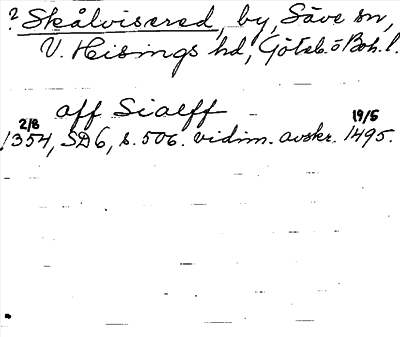 ? Skålvisered, by, Säve sn,
V. Hisings hd, Götebs o Boh. l.
aff Sialeff
2/8 19/5
1354, SD 6, s. 506. vidim. avskr. 1495.